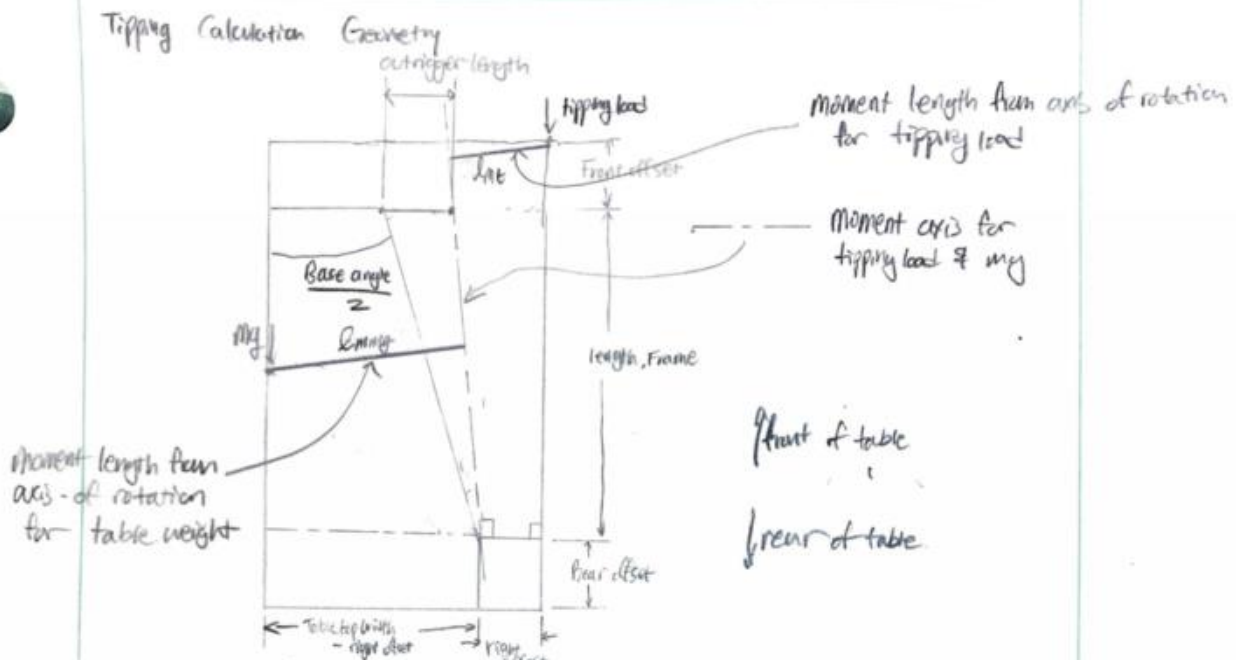 Tipping Calculation Geometry
outrigger length
tipping load
moment length from axis of rotation
for tipping load
Front offset
moment axis for
tipping load & mg
Base angle
2
Mg
length, Frame
moment length from
axis of rotation
for table weight
front of table
rear of table
Rear offset
Tabletop width
- right offset
right